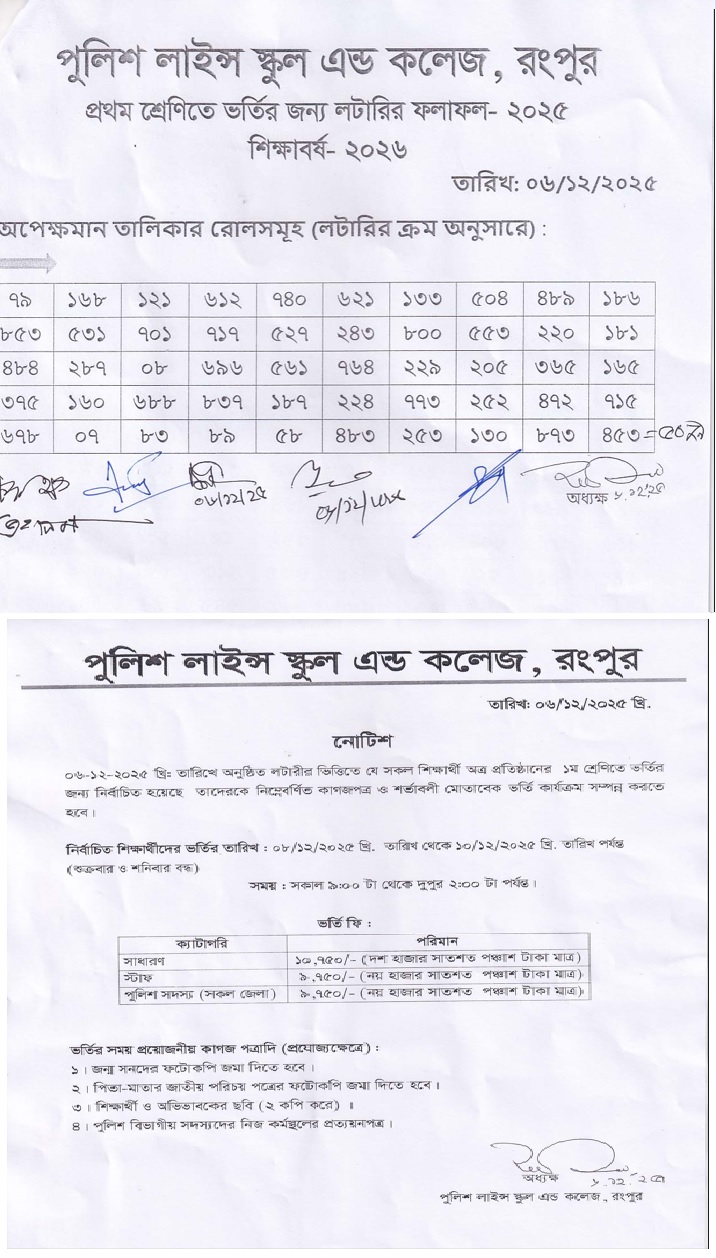 পুলিশ লাইন্স স্কুল এন্ড কলেজ, রংপুর
প্রথম শ্রেণিতে ভর্তির জন্য লটারির ফলাফল- ২০২৫
শিক্ষাবর্ষ- ২০২৬
তারিখ: ০৬/১২/২০২৫
অপেক্ষমান তালিকার রোলসমূহ (লটারির ক্রম অনুসারে) :
৭৯ ১৬৮ ১২১ ৬১২ ৭৪০ ৬২১ ১৩৩ ৫০৪ ৪৮৯ ১৮৬
৮৫৩ ৫৩১ ৭০১ ৭১৭ ৫২৭ ২৪৩ ৮০০ ৫৫৩ ২২০ ১৮১
৪৮৪ ২৮৭ ০৮ ৬৯৬ ৫৬১ ৭৬৪ ২২৯ ২০৫ ৩৬৫ ১৬৫
৩৭৫ ১৬০ ৬৮৮ ৮৩৭ ১৮৭ ২২৪ ৭৭৩ ২৫২ ৪৭২ ৭১৫
৬৭৮ ০৭ ৮৩ ৮৯ ৫৮ ৪৮৩ ২৫৩ ১৩০ ৮৭৩ ৪৫৩
০৬/১২/২৫
অধ্যক্ষ ৬.১২.২৫
পুলিশ লাইন্স স্কুল এন্ড কলেজ, রংপুর
তারিখ: ০৬/১২/২০২৫ খ্রি.
নোটিশ
০৬-১২-২০২৫ খ্রিঃ তারিখে অনুষ্ঠিত লটারীর ভিত্তিতে যে সকল শিক্ষার্থী অত্র প্রতিষ্ঠানের ১ম শ্রেণিতে ভর্তির
জন্য নির্বাচিত হয়েছে তাদেরকে নিম্নেবর্ণিত কাগজপত্র ও শর্তাবলী মোতাবেক ভর্তি কার্যক্রম সম্পন্ন করতে
হবে।
নির্বাচিত শিক্ষার্থীদের ভর্তির তারিখ : ০৮/১২/২০২৫ খ্রি. তারিখ থেকে ১০/১২/২০২৫ খ্রি. তারিখ পর্যন্ত
(শুক্রবার ও শনিবার বন্ধ)
সময় : সকাল ৯:০০ টা থেকে দুপুর ২:০০ টা পর্যন্ত।
ভর্তি ফি :
ক্যাটাগরি পরিমান
সাধারণ ১০,৭৫০/- (দশ হাজার সাতশত পঞ্চাশ টাকা মাত্র)
স্টাফ ৯,৭৫০/- (নয় হাজার সাতশত পঞ্চাশ টাকা মাত্র)
পুলিশ সদস্য (সকল জেলা) ৯,৭৫০/- (নয় হাজার সাতশত পঞ্চাশ টাকা মাত্র)
ভর্তির সময় প্রয়োজনীয় কাগজ পত্রাদি (প্রযোজ্যক্ষেত্রে) :
১। জন্ম সনদের ফটোকপি জমা দিতে হবে।
২। পিতা-মাতার জাতীয় পরিচয় পত্রের ফটোকপি জমা দিতে হবে।
৩। শিক্ষার্থী ও অভিভাবকের ছবি (২ কপি করে) ॥
৪। পুলিশ বিভাগীয় সদস্যদের নিজ কর্মস্থলের প্রত্যয়নপত্র।
অধ্যক্ষ ৬.১২.২৫
পুলিশ লাইন্স স্কুল এন্ড কলেজ, রংপুর